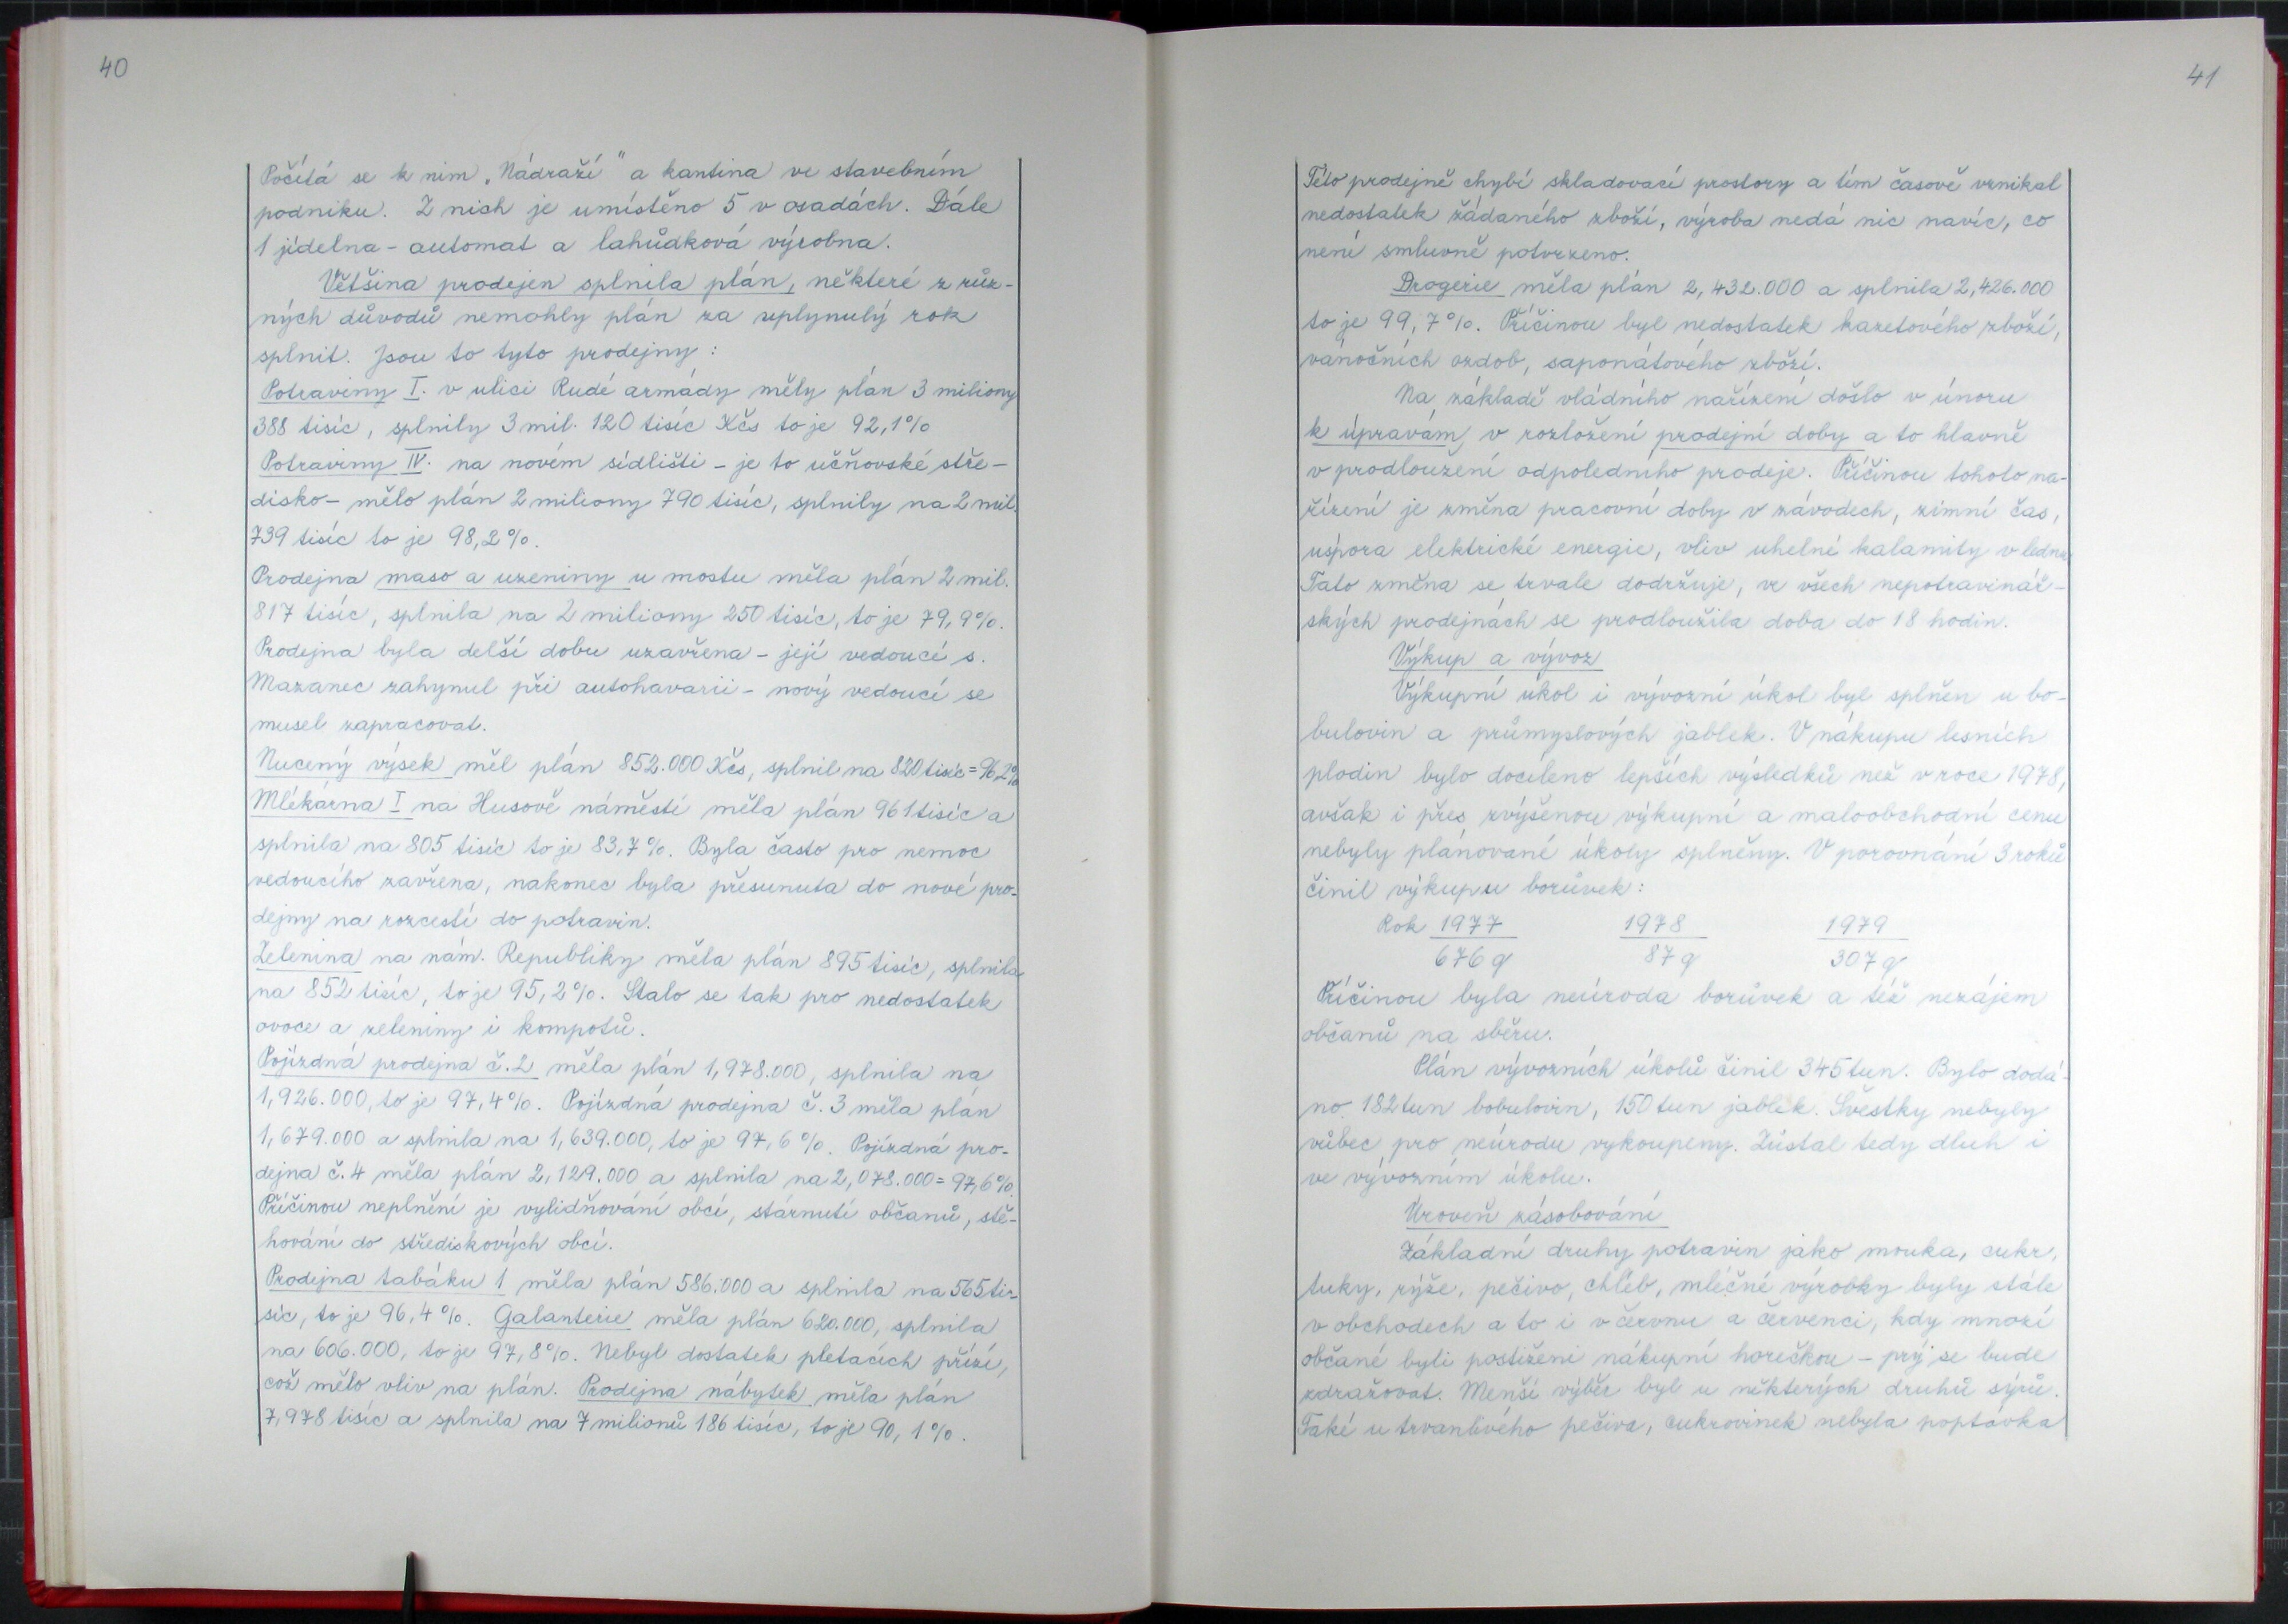 40
Počítá se k nim „Nádraží" a kantina ve stavebním
podniku. Z nich je umístěno 5 v osadách. Dále
1 jídelna - automat a lahůdková výrobna.
Většina prodejen splnila plán, některé z růz-
ných důvodů nemohly plán za uplynulý rok
splnit. Jsou to tyto prodejny:
Potraviny I. v ulici Rudé armády měly plán 3 miliony
388 tisíc, splnily 3 mil. 120 tisíc Kčs to je 92,1%
Potraviny IV. na novém sídlišti - je to učňovské stře-
disko - mělo plán 2 miliony 790 tisíc, splnily na 2 mil.
739 tisíc to je 98,2%.
Prodejna maso a uzeniny u mostu měla plán 2 mil.
817 tisíc, splnila na 2 miliony 250 tisíc, to je 79,9%.
Prodejna byla delší dobu uzavřena - její vedoucí s.
Mazanec zahynul při autohavarii - nový vedoucí se
musel zapracovat.
Nucený výsek měl plán 852.000 Kčs, splnil na 820 tisíc = 96,2%
Mlékárna I na Husově náměstí měla plán 961 tisíc a
splnila na 805 tisíc to je 83,7%. Byla často pro nemoc
vedoucího zavřena, nakonec byla přesunuta do nové pro-
dejny na rozcestí do potravin.
Zelenina na nám. Republiky měla plán 895 tisíc, splnila
na 852 tisíc, to je 95,2%. Stalo se tak pro nedostatek
ovoce a zeleniny i kompotů.
Pojízdná prodejna č.2 měla plán 1,978.000, splnila na
1,926.000, to je 97,4%. Pojízdná prodejna č.3 měla plán
1,679.000 a splnila na 1,639.000, to je 97,6%. Pojízdná pro-
dejna č.4 měla plán 2,129.000 a splnila na 2,078.000 = 97,6%.
Příčinou neplnění je vylidňování obcí, stárnutí občanů, stě-
hování do střediskových obcí.
Prodejna tabáku 1 měla plán 586.000 a splnila na 565 ti-
síc, to je 96,4%. Galanterie měla plán 620.000, splnila
na 606.000, to je 97,8%. Nebyl dostatek pletacích přízí,
což mělo vliv na plán. Prodejna nábytek měla plán
7,978 tisíc a splnila na 7 milionů 186 tisíc, to je 90,1%.
41
Této prodejně chybí skladovací prostory a tím časově vznikal
nedostatek žádaného zboží, výroba nedá nic navíc, co
není smluvně potvrzeno.
Drogerie měla plán 2,432.000 a splnila 2,426.000
to je 99,7%. Příčinou byl nedostatek kazetového zboží,
vánočních ozdob, saponátového zboží.
Na základě vládního nařízení došlo v únoru
k úpravám v rozložení prodejní doby a to hlavně
v prodloužení odpoledního prodeje. Příčinou tohoto na-
řízení je změna pracovní doby v závodech, zimní čas,
úspora elektrické energie, vliv uhelné kalamity v lednu.
Tato změna se trvale dodržuje, ve všech nepotravinář-
ských prodejnách se prodloužila doba do 18 hodin.
Výkup a vývoz
Výkupní úkol i vývozní úkol byl splněn u bo-
bulovin a průmyslových jablek. V nákupu lesních
plodin bylo docíleno lepších výsledků než v roce 1978,
avšak i přes zvýšenou výkupní a maloobchodní cenu
nebyly plánované úkoly splněny. V porovnání 3 roků
činil výkupu borůvek:
Rok 1977 1978 1979
676 q 87 q 307 q
Příčinou byla neúroda borůvek a též nezájem
občanů na sběru.
Plán vývozních úkolů činil 345 tun. Bylo dodá-
no 182 tun bobulovin, 150 tun jablek. Švestky nebyly
vůbec pro neúrodu vykoupeny. Zůstal tedy dluh i
ve vývozním úkolu.
Úroveň zásobování
Základní druhy potravin jako mouka, cukr,
tuky, rýže, pečivo, chléb, mléčné výrobky byly stále
v obchodech a to i v červnu a červenci, kdy mnozí
občané byli postiženi nákupní horečkou - prý se bude
zdražovat. Menší výběr byl u některých druhů sýrů.
Také u trvanlivého pečiva, cukrovinek nebyla poptávka